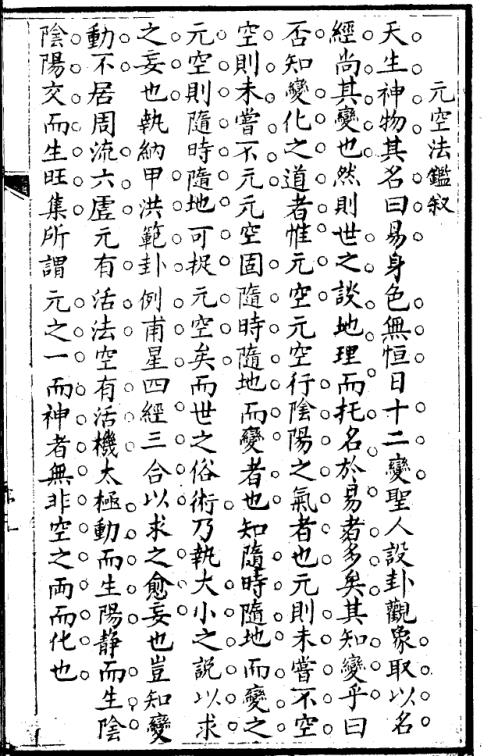 元空法鑑叙
天生神物其名曰易身色無恒日十二變聖人設卦觀象取以名
經尚其變也然則世之談地理而托名於易者多矣其知變乎曰
否知變化之道者惟元空元空行陰陽之氣者也元則未嘗不空
空則未嘗不元元空固隨時隨地而變者也知隨時隨地而變之
元空則隨時隨地可捉元空矣而世之俗術乃執大小之説以求
之妄也執納甲洪範卦例甫星四經三合以求之愈妄也豈知變
動不居周流六虛元有活法空有活機太極動而生陽静而生陰
陰陽交而生旺集所謂元之一而神者無非空之両而化也